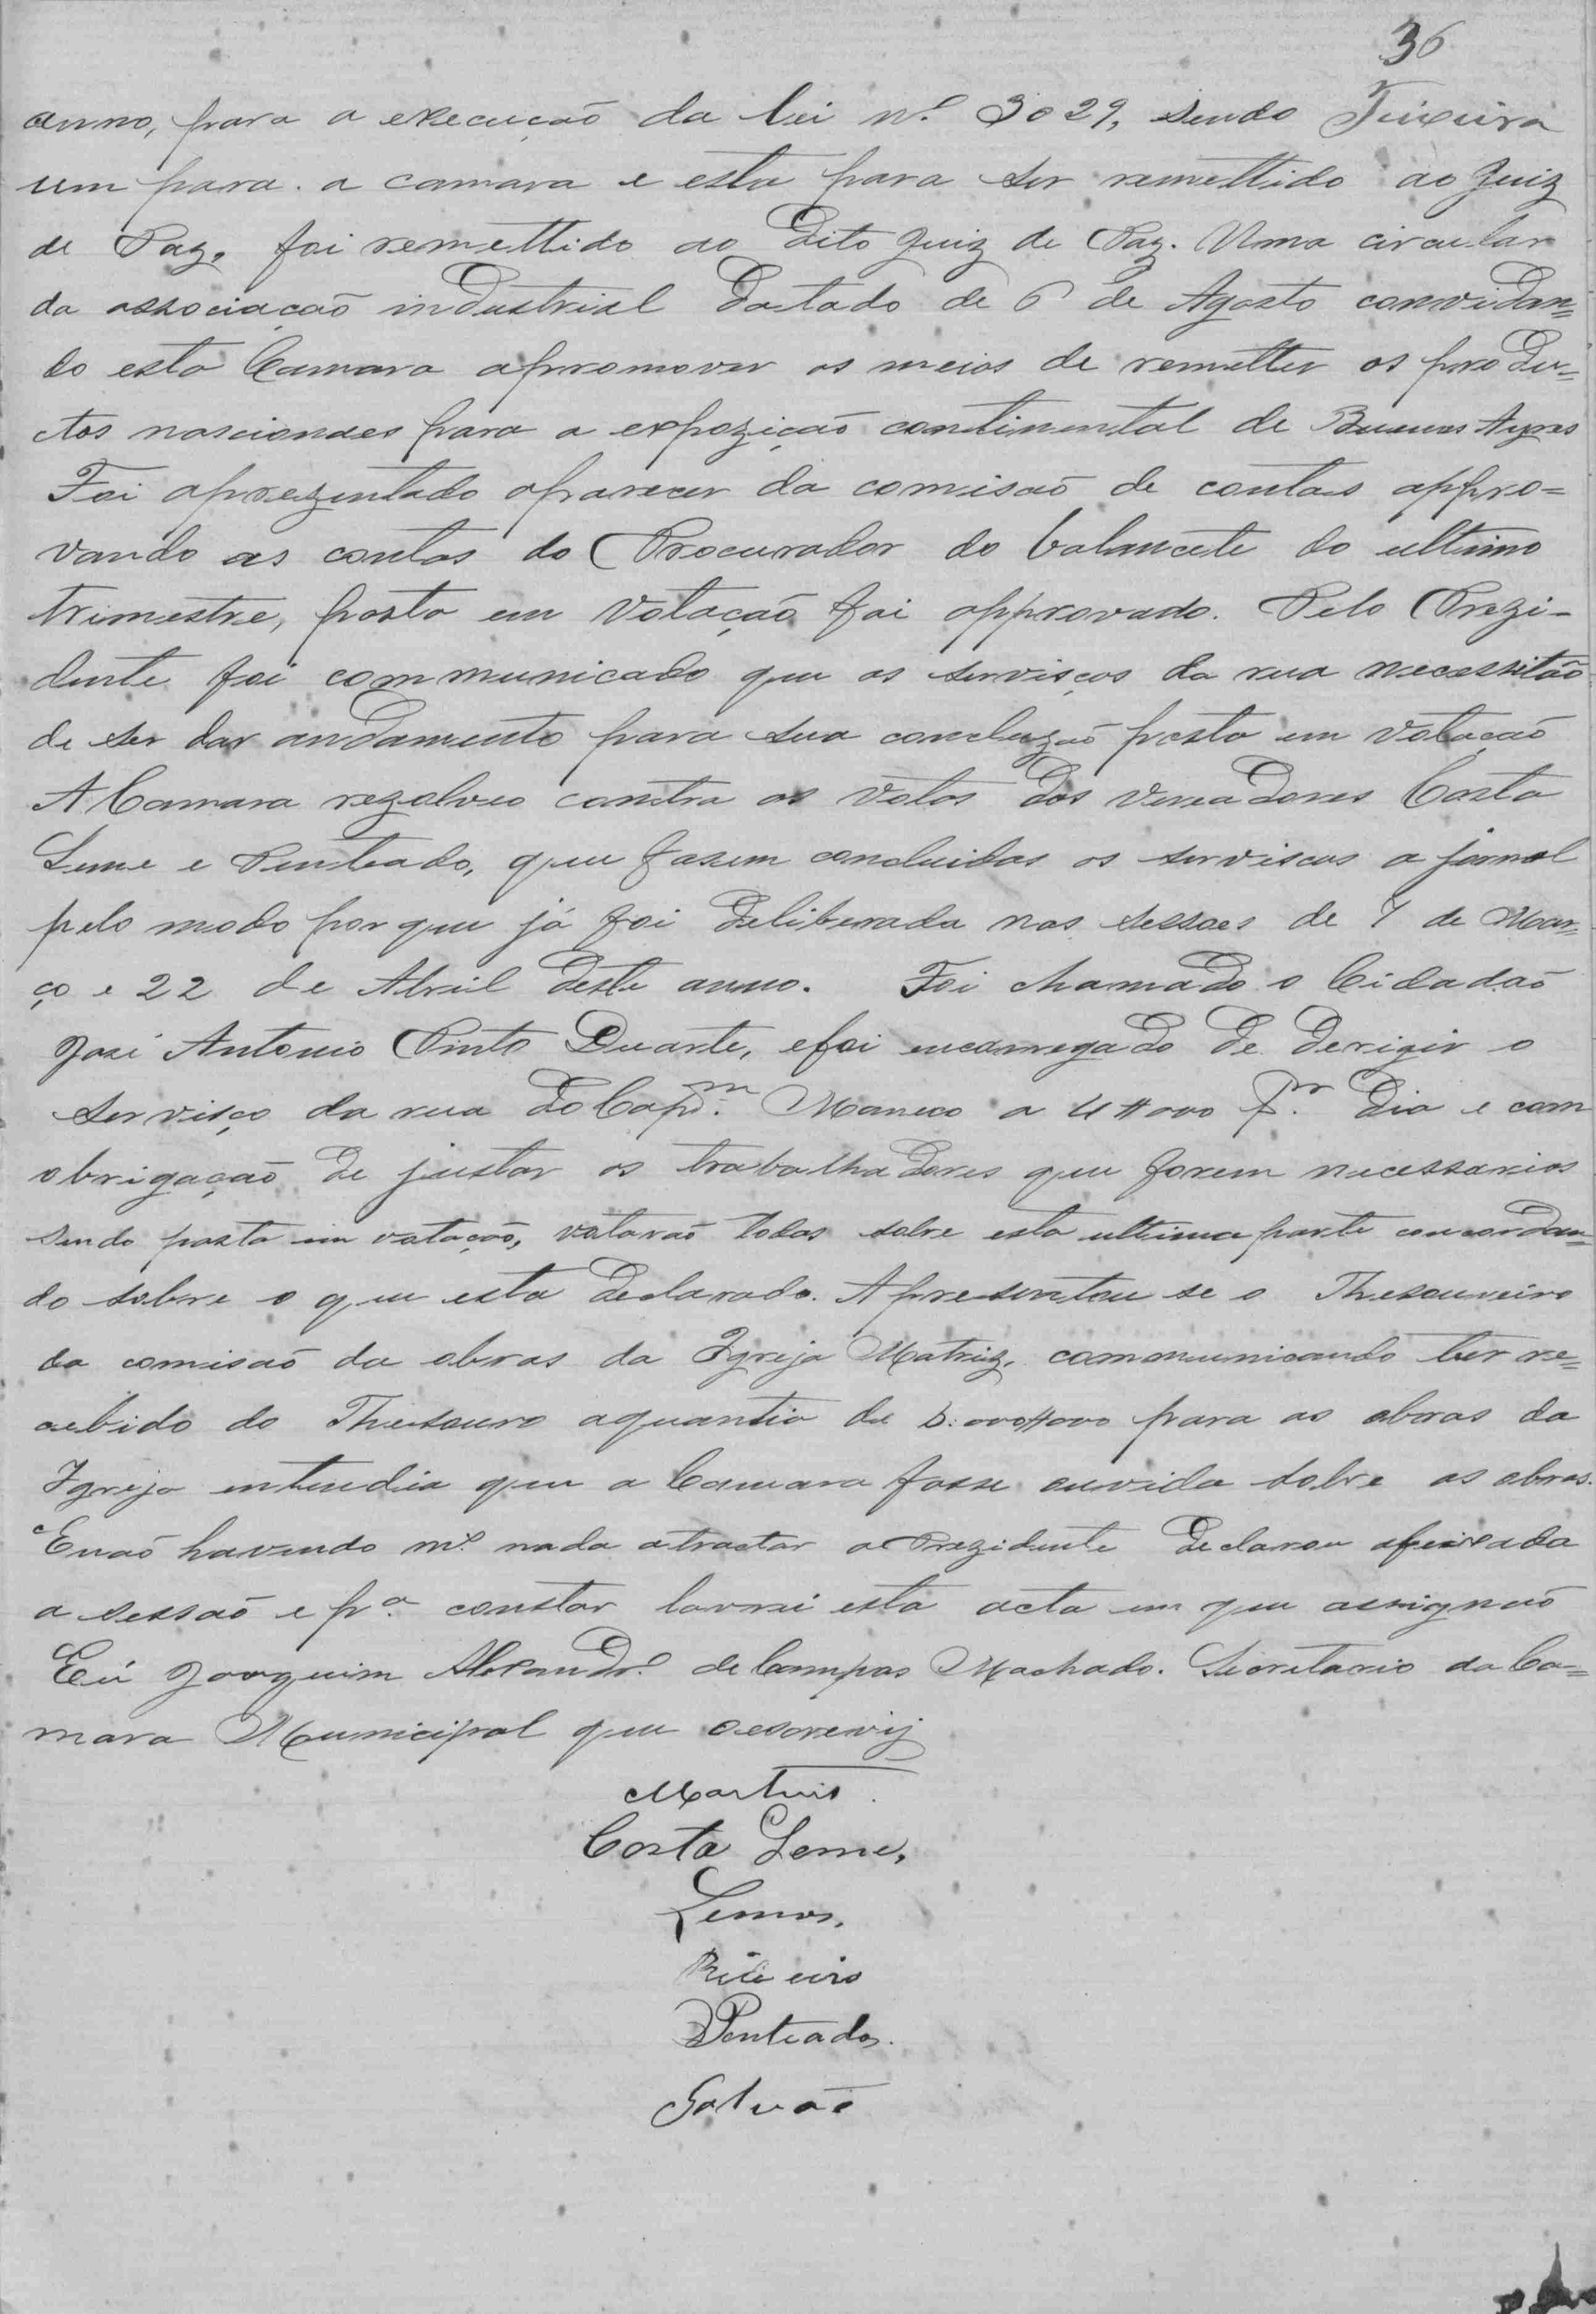 36
Teixeira
anno, para a execução da lei nº 3029, sendo
um para a camara e este para ser remettido ao Juiz
de Paz, foi remettido ao dito Juiz de Paz. Uma circular
da associação industrial datado de 6 de Agosto convidan=
do esta Camara apromover os meios de remetter os produ=
ctos nascionaes para a expozição continental de Buenos Ayres
Foi aprezentado oparecer da comisaõ de contas appro=
vando as contas do Procurador do balancete do ultimo
trimestre, posto em votação foi approvado. Pelo Prezi-
dente foi communicado que os servisços da rua necessitão
de ser dar andamento para sua concluzaõ posto em votação
A Camara rezolveo contra os votos dos vereadores Costa
Leme e Penteado, que fasem concluidas os serviscos a jornal
pelo modo por que já foi deliberada nas sessões de 7 de Mar=
ço e 22 de Abril deste anno. Foi chamado o Cidadaõ
José Antonio Pinto Duarte, efoi encarregado de derigir o
servisço da rua do Capm. Maneco a 4#000 pr. dia e com
obrigação de justar os trabalhadores que forem necessarios
sendo posta em votação, votaraõ todos sobre esta ultima parte concordan=
do sobre o que esta declarado. Apresentou se o Thesoureiro
da comisaõ da obras da Igreja Matriz, communicando ter re=
cebido do Thesouro aquantia de 5:000#000 para as obras da
Igreja intendia que a Camara fosse ouvida sobre as obras.
Enaõ havendo mº nada atractar o Prezidente declarou afeixada
a sessaõ e pª constar lavrei esta acta em que assignaõ
Eú Joaquim Alexandrº de Campos Machado. Secretario da Ca=
mara Municipal que oescrevij
Martins.
Costa Leme,
Lemos,
Ribeiro
Penteado.
Galvaõ